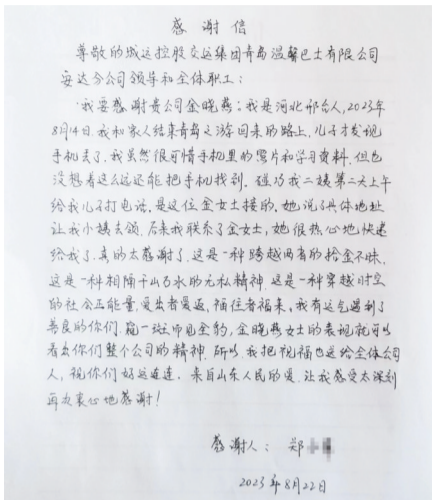 感谢信
尊敬的城运控股交运集团青岛温馨巴士有限公司
安达分公司领导和全体职工:
我要感谢贵公司金晓燕:我是河北邢台人,2023年
8月14日我和家人结束青岛之游回来的路上,儿子才发现
手机丢了,我虽然很可惜手机里的照片和学习资料,但也
没想着这么远还能把手机找到。碰巧我二姨第二天上午
给我儿子打电话,是这位金女士接的,她说了具体地址
让我小姨去领。后来我联系了金女士,她很热心地快递
给我了。真的太感谢了,这是一种跨越两省的拾金不昧,
这是一种相隔千山万水的无私精神,这是一种穿越时空
的社会正能量,爱出者爱返,福往者福来,我有运气遇到了
善良的你们,窥一斑而见全豹,金晓燕女士的表现就可以
看出你们整个公司的精神,所以,我把祝福也送给全体公司
人,祝你们好运连连,来自山东人民的爱,让我感受太深刻
再次衷心地感谢!
感谢人:郑
2023年8月22日